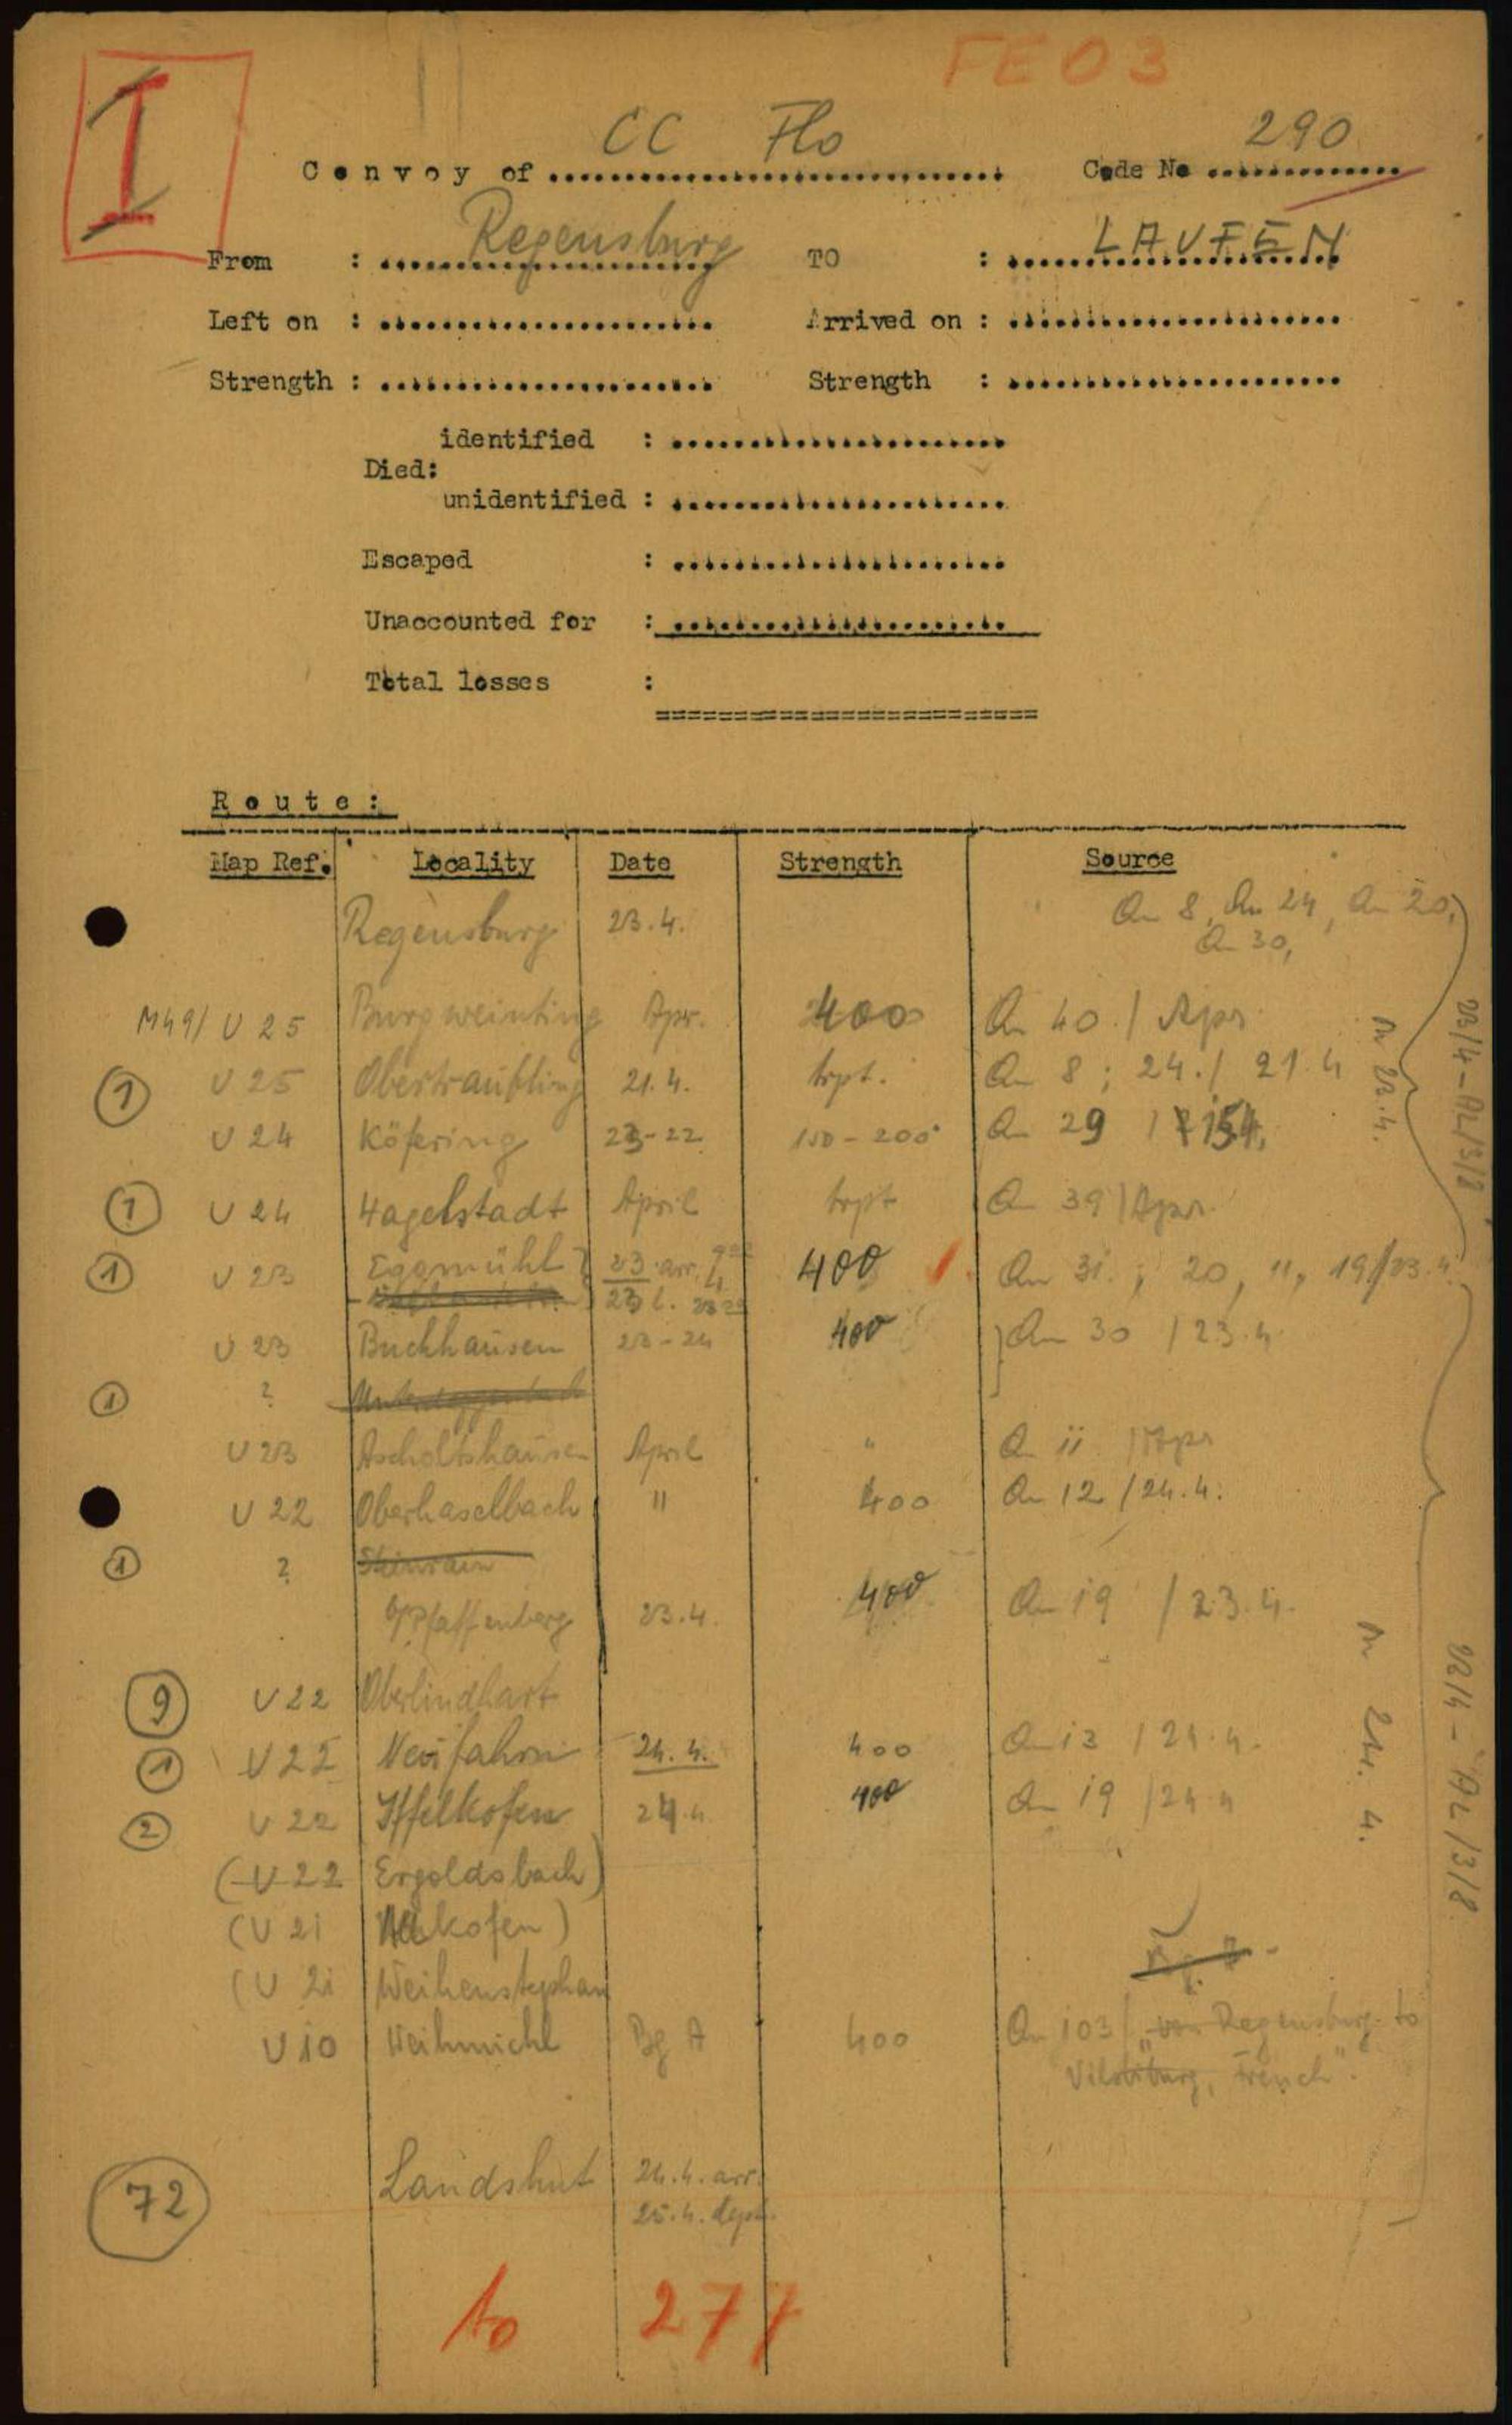 FE03
I
CC Flo
290
Convoy of ............................. Code No .............
Regensburg
LAUFEN
From : ...................... TO : ......................
Left on : ...................... Arrived on : ......................
Strength : ...................... Strength : ......................
identified : ......................
Died:
unidentified : ......................
Escaped : ......................
Unaccounted for : ......................
Total losses :
=========================
Route:
Map Ref. Locality Date Strength Source
Regensburg 23.4. An 8, An 24, An 20,
An 30,
M49/ U 25 Burgweinting Apr. 400 An 40 / Apr.
① U 25 Obertraubling 21.4. trpt. An 8 ; 24. / 21.4
U 24 Köfering 23-22 150 - 200 An 29 /
① U 24 Hagelstadt April trpt An 39 / Apr.
① U 23 Eggmühl 23 arr. 400 An 31. ; 20, 11, 19/23.4.
U 23 Buchhausen 23-24 400 An 30 / 23.4.
① ?
U 23 Ascholtshausen April " An 11 / Apr
U 22 Oberhaselbach " 400 An 12 / 24.4.
① ? Steinrain
Pfaffenberg 23.4. 400 An 19 / 23.4.
⑨ U 22 Oberlindhart
① U 22 Neufahrn 24.4. 400 An 13 / 24.4.
② U 22 Iffelkofen 24.4 400 An 19 / 24.4
(U 22 Ergoldsbach)
(U 21 kofen)
(U 21 Weihenstephan
U 10 Weihmichl Bg A 400 An 103 / "von Regensburg to
Vilsbiburg, French".
72 Landshut 24.4. arr.
25.4. dept.
to 277
23/4 - AL/3/8
n 23.4.
n 24. 4.